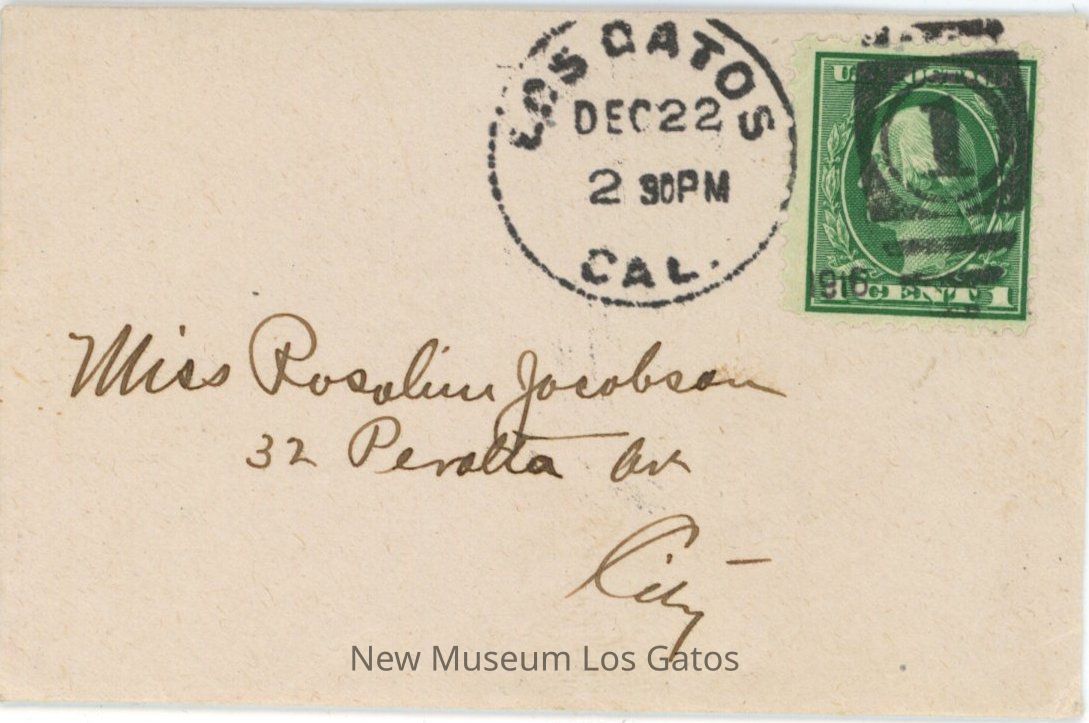 LOS GATOS
DEC 22
2 30 PM
CAL.
1916
1
CENT 1
Miss Rosaline Jacobson
32 Peralta Av
City -
New Museum Los Gatos